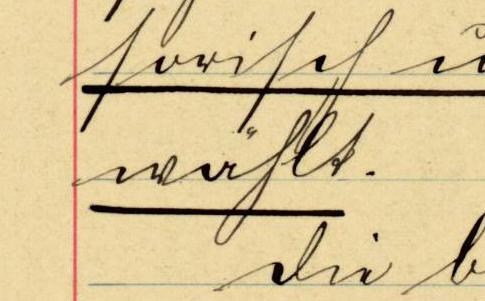 sorisch u
wählt.
Die b